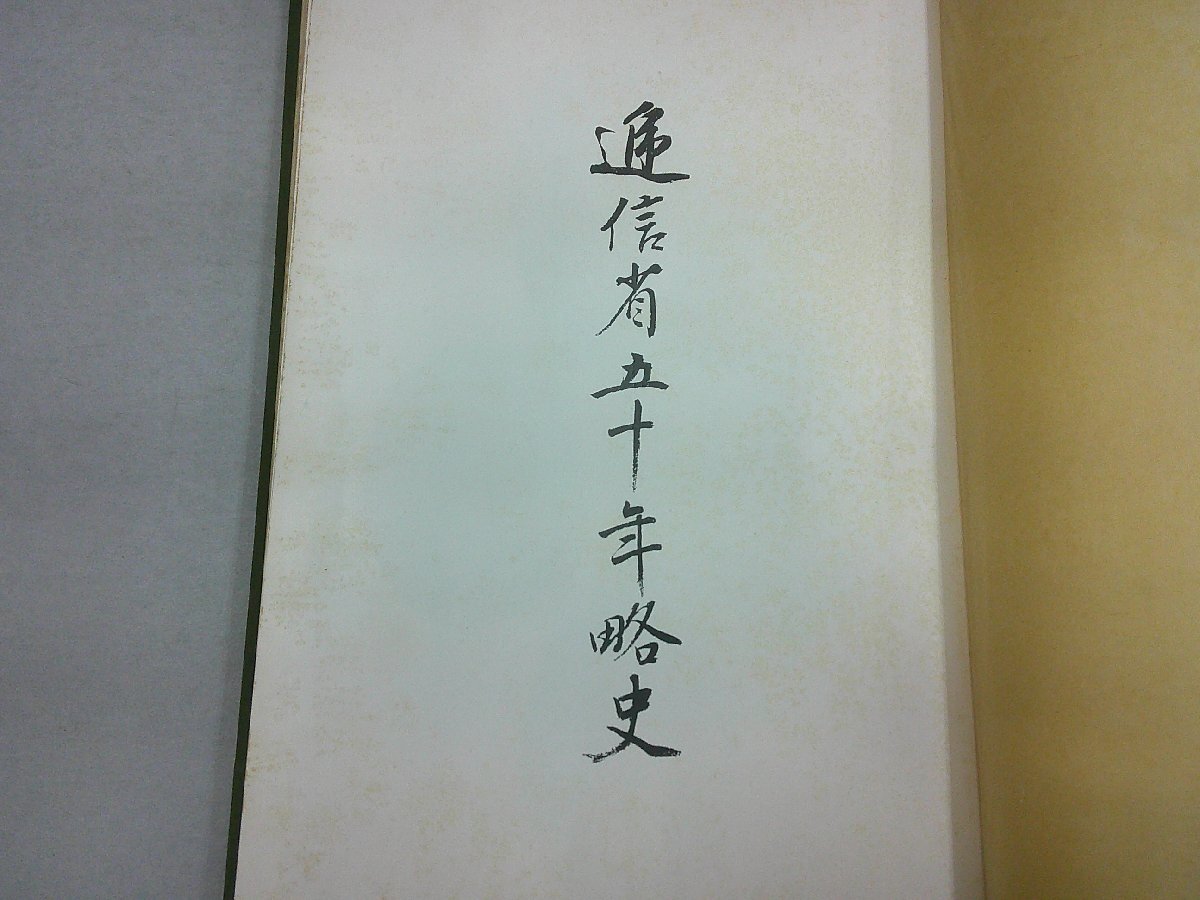 遞信省五十年略史